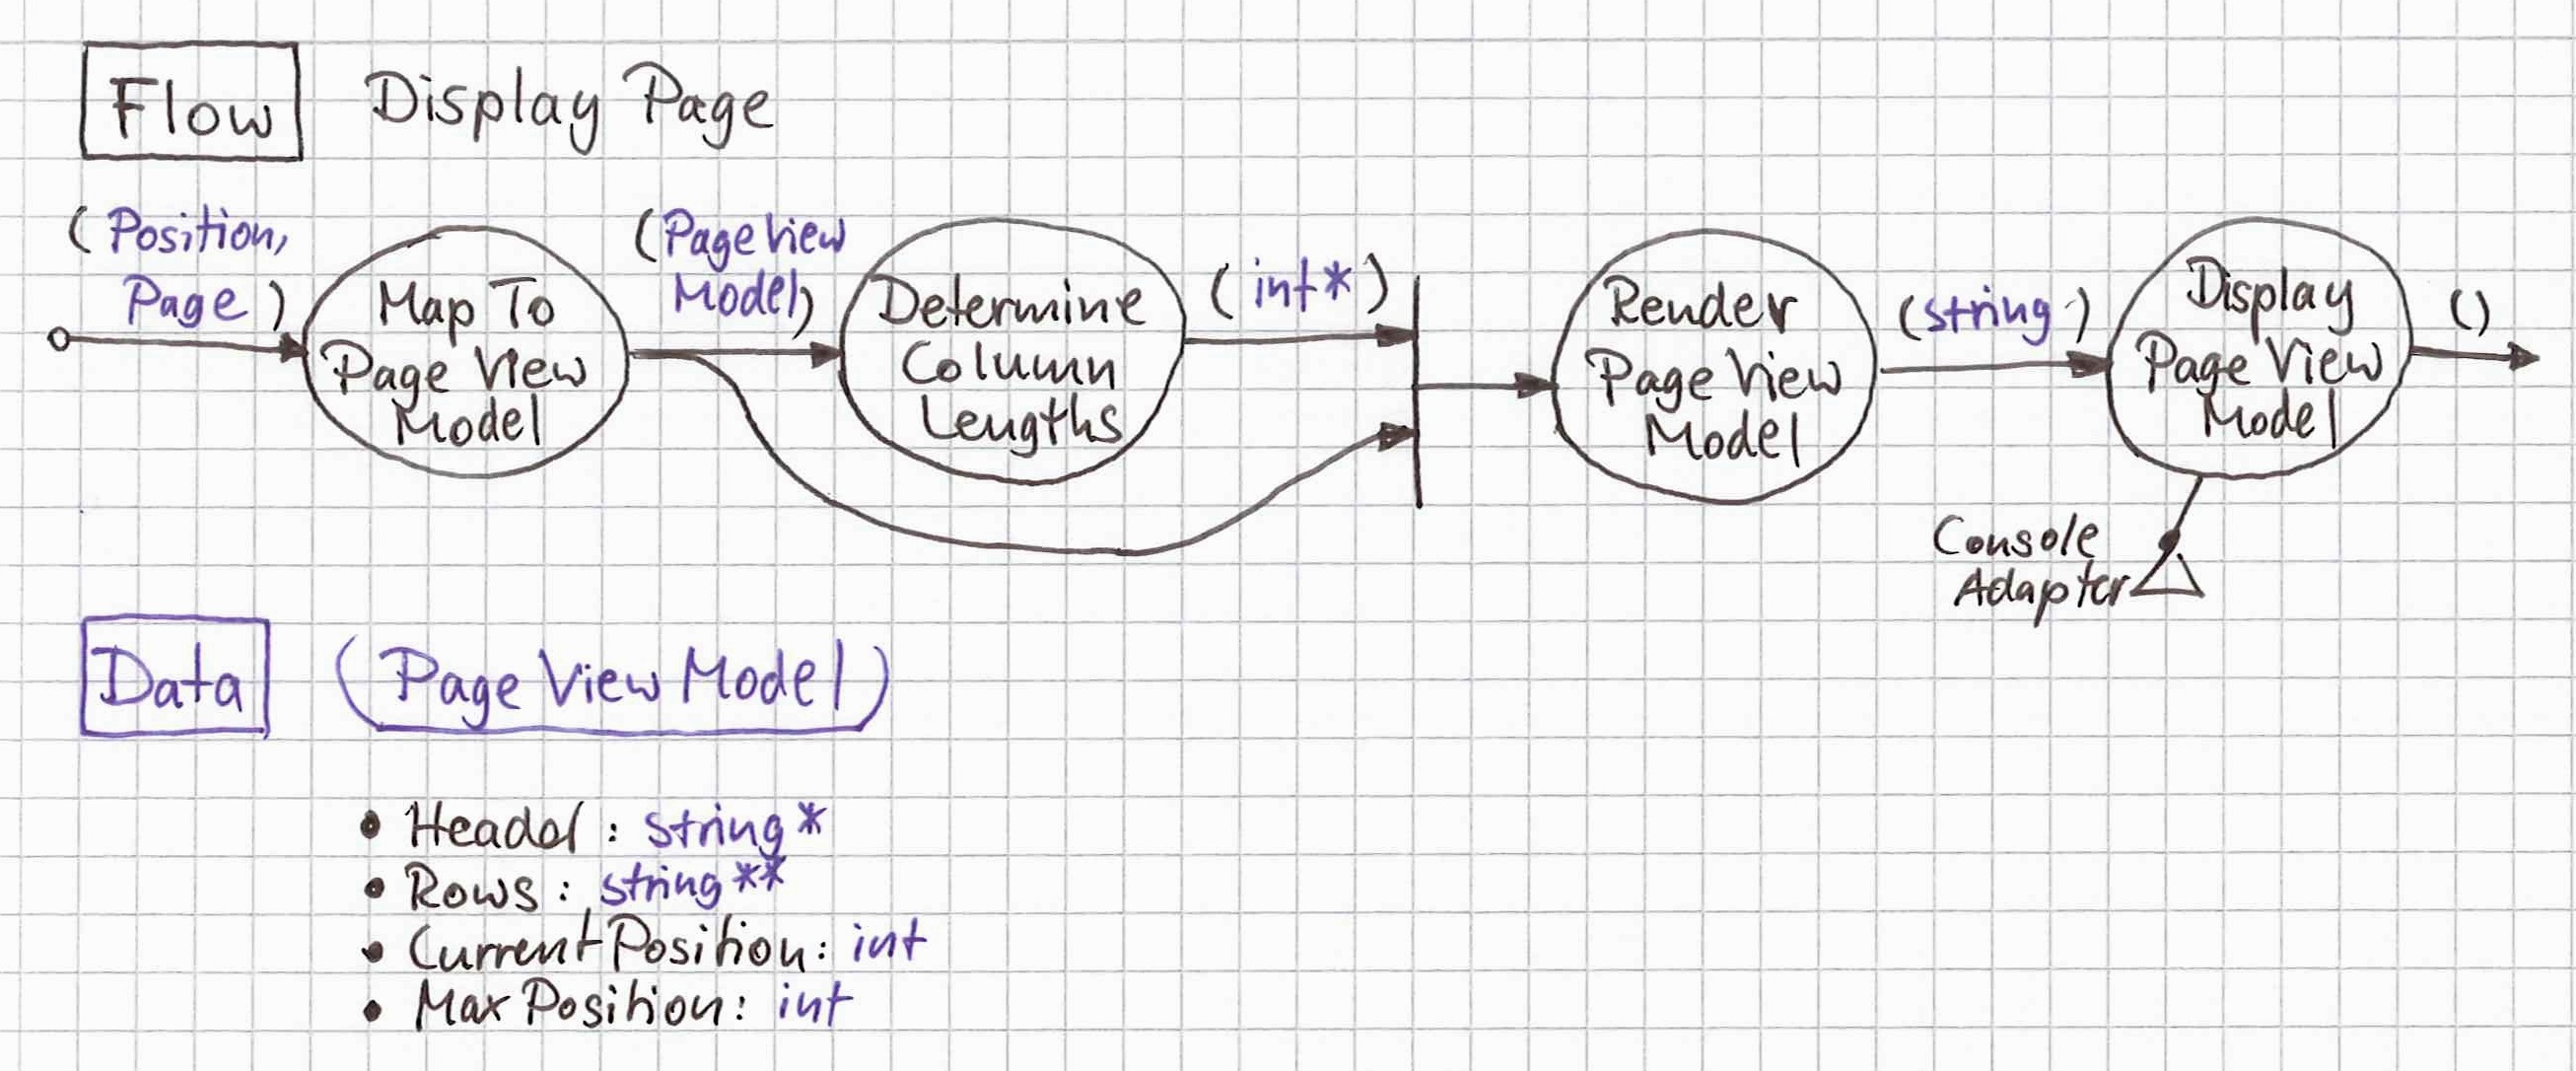 Flow
Display Page
( Position,
Page )
Map To
Page View
Model
(Page View
Model)
Determine
Column
Lengths
( int* )
Render
Page View
Model
(string)
Display
Page View
Model
()
Console
Adapter
Data
(Page View Model)
• Header : string*
• Rows : string**
• Current Position: int
• Max Position: int